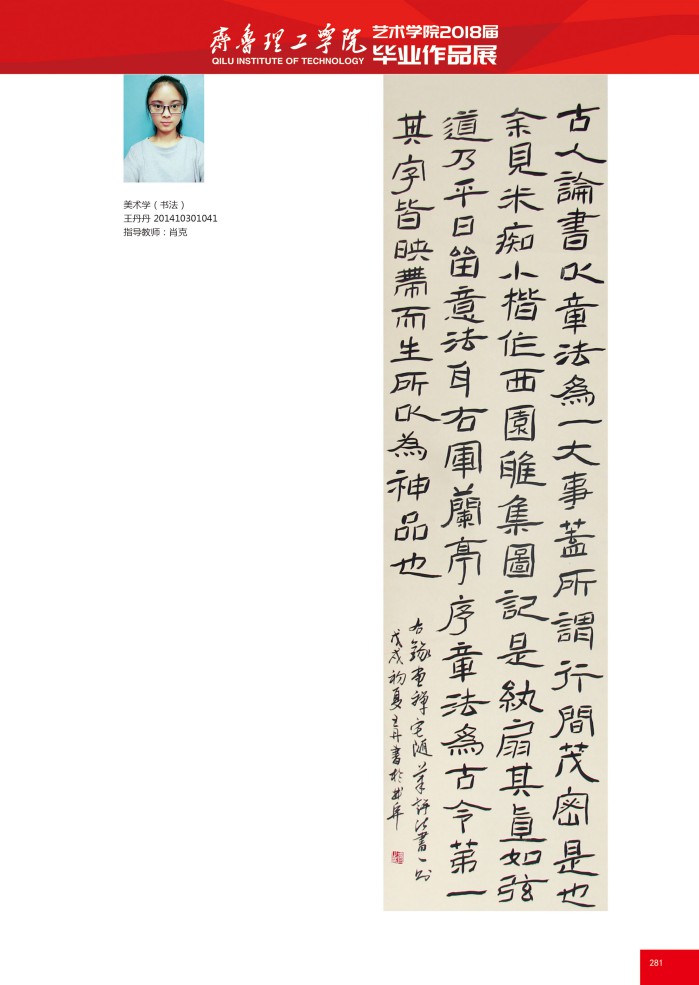 齊魯理工學院
QILU INSTITUTE OF TECHNOLOGY
艺术学院2018届
毕业作品展
美术学（书法）
王丹丹 201410301041
指导教师：肖克
古人論書以章法為一大事蓋所謂行間茂密是也
余見米痴小楷作西園雅集圖記是紈扇其直如弦
道乃平日留意法耳右軍蘭亭序章法為古今第一
其字皆映帶而生所以為神品也
右錄畫禪室隨筆評法書一則
戊戌初夏王丹書於
281